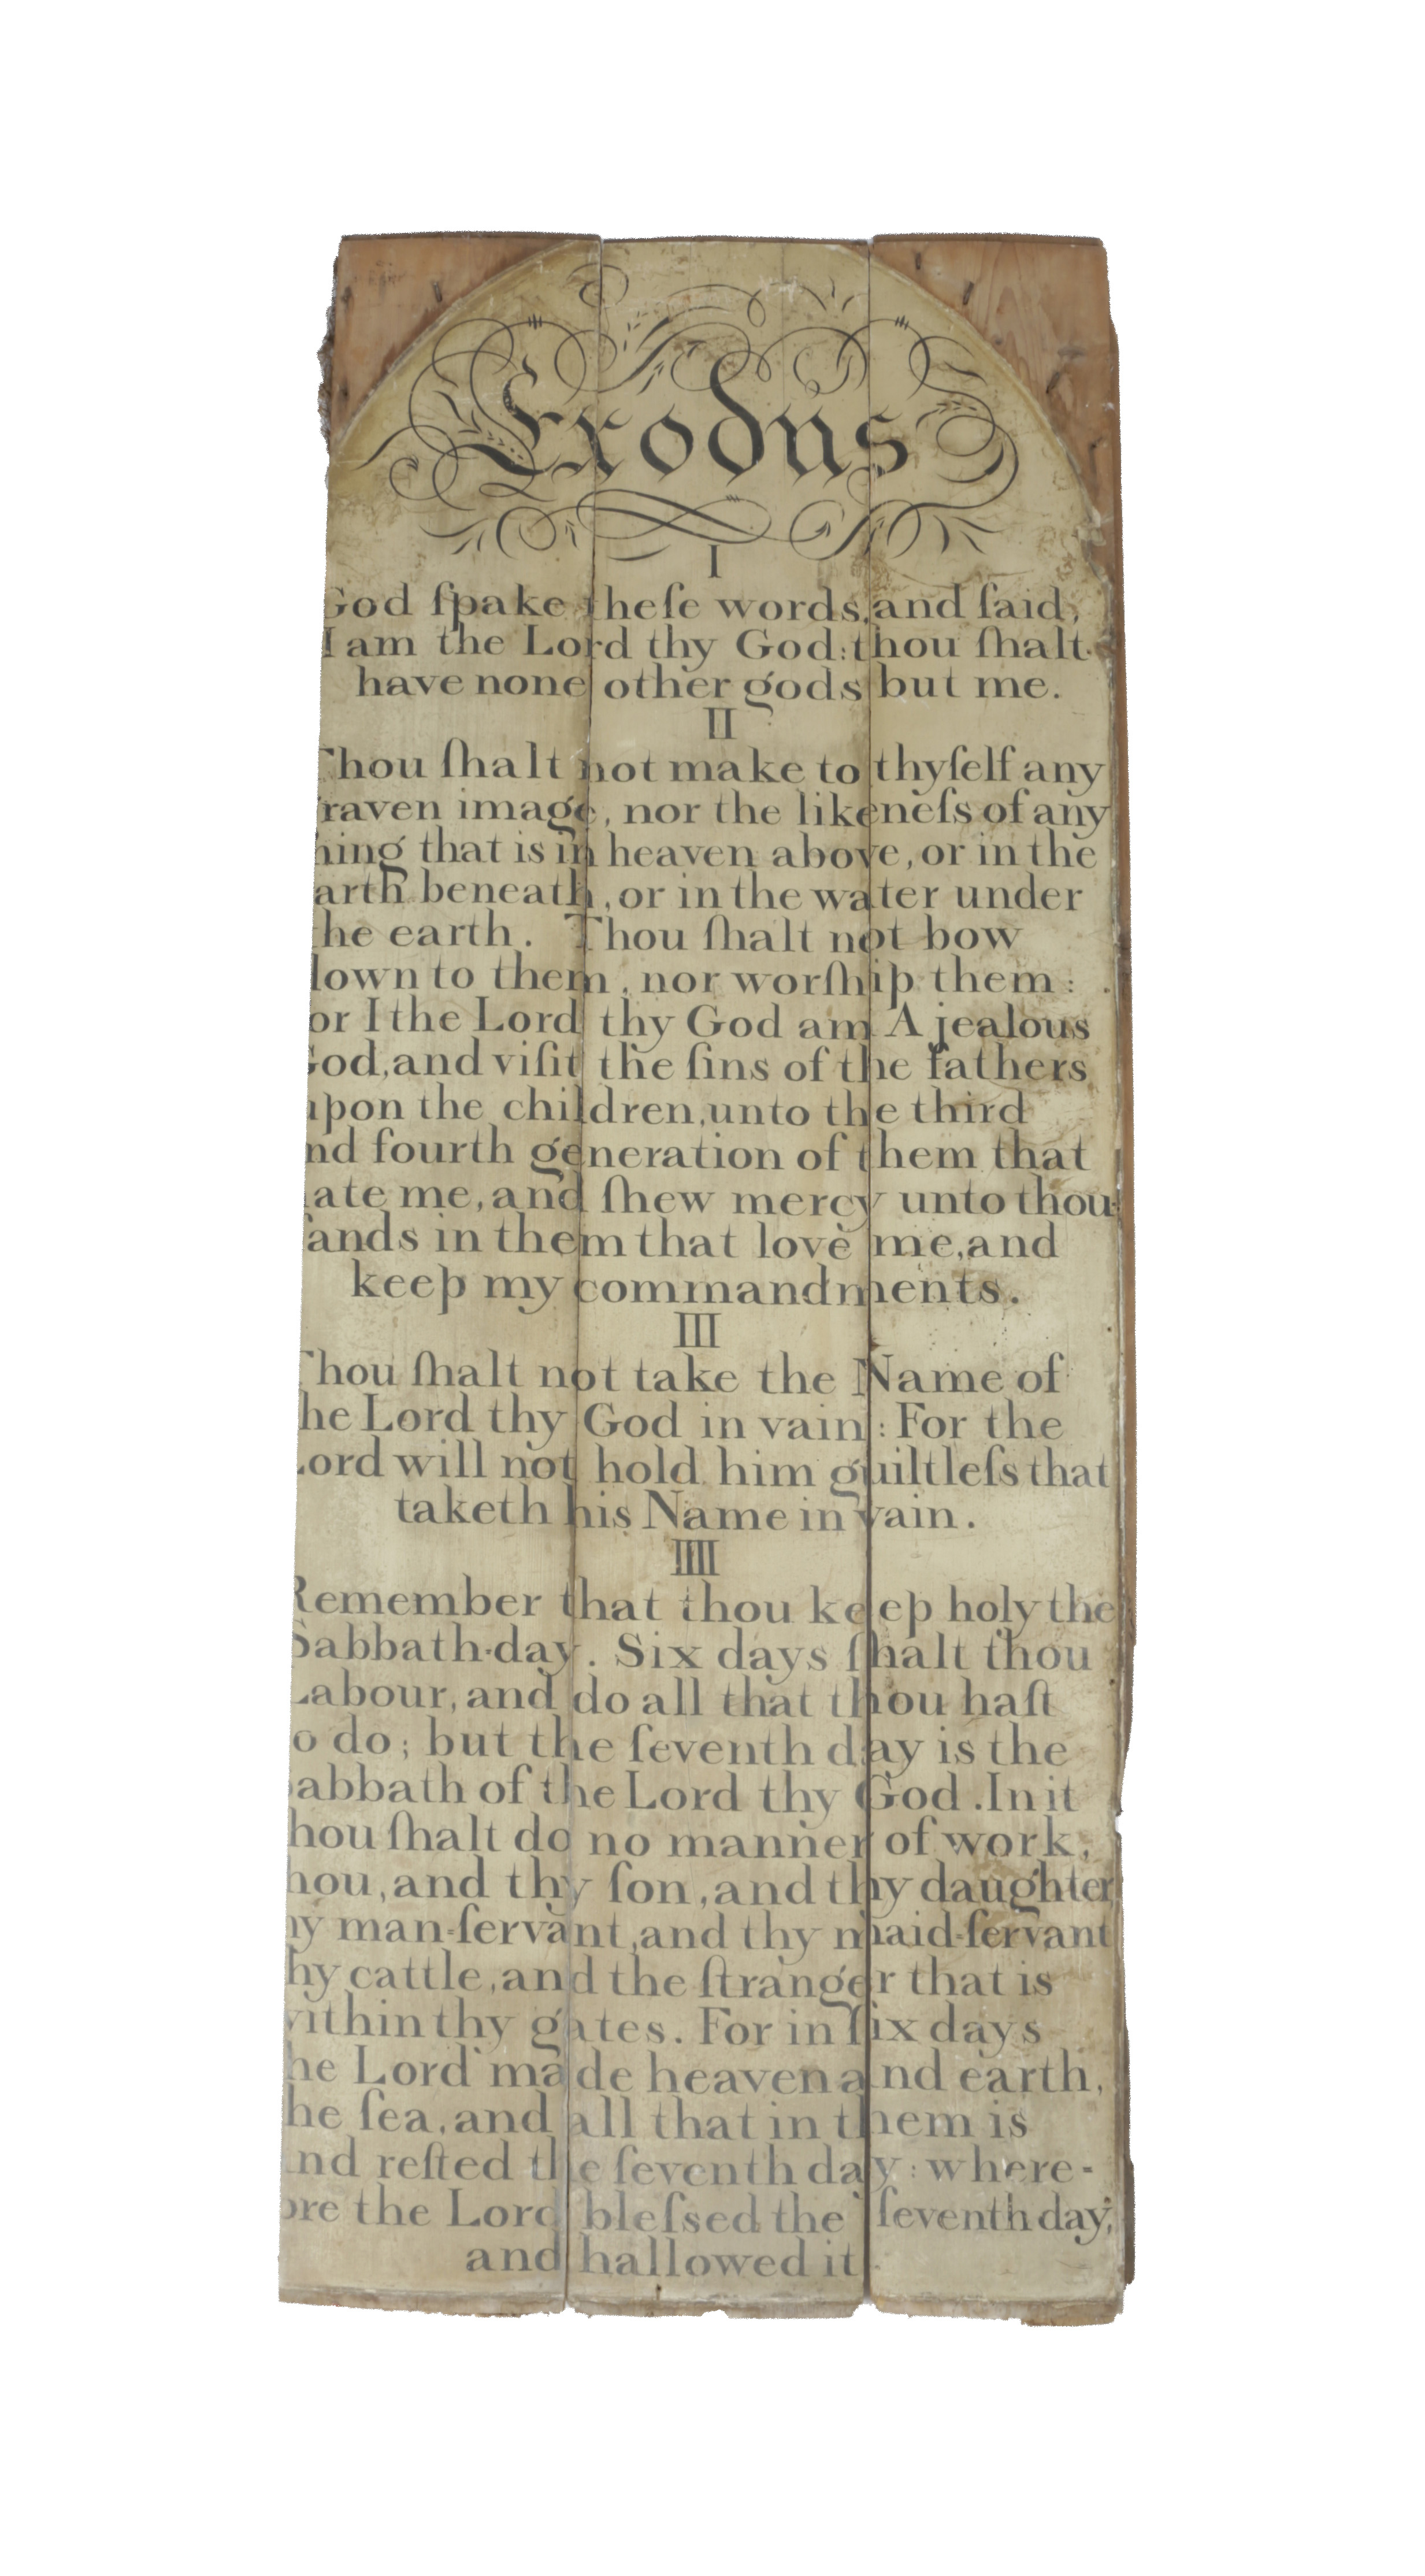 Exodus
I
God ſpake theſe words, and ſaid,
I am the Lord thy God: thou ſhalt
have none other gods but me.
II
Thou ſhalt not make to thyſelf any
graven image, nor the likeneſs of any
hing that is in heaven above, or in the
arth beneath, or in the water under
he earth. Thou ſhalt not bow
down to them, nor worſhip them:
or I the Lord thy God am A jealous
God, and viſit the ſins of the fathers
upon the children, unto the third
nd fourth generation of them that
hate me, and ſhew mercy unto thou-
ſands in them that love me, and
keep my commandments.
III
Thou ſhalt not take the Name of
he Lord thy God in vain: For the
Lord will not hold him guiltleſs that
taketh his Name in vain.
IIII
Remember that thou keep holy the
Sabbath-day. Six days ſhalt thou
Labour, and do all that thou haſt
o do; but the ſeventh day is the
Sabbath of the Lord thy God. In it
hou ſhalt do no manner of work,
hou, and thy ſon, and thy daughter
hy man-ſervant, and thy maid-ſervant
hy cattle, and the ſtranger that is
within thy gates. For in ſix days
he Lord made heaven and earth,
he ſea, and all that in them is
and reſted the ſeventh day: where-
ore the Lord bleſsed the ſeventh day,
and hallowed it.